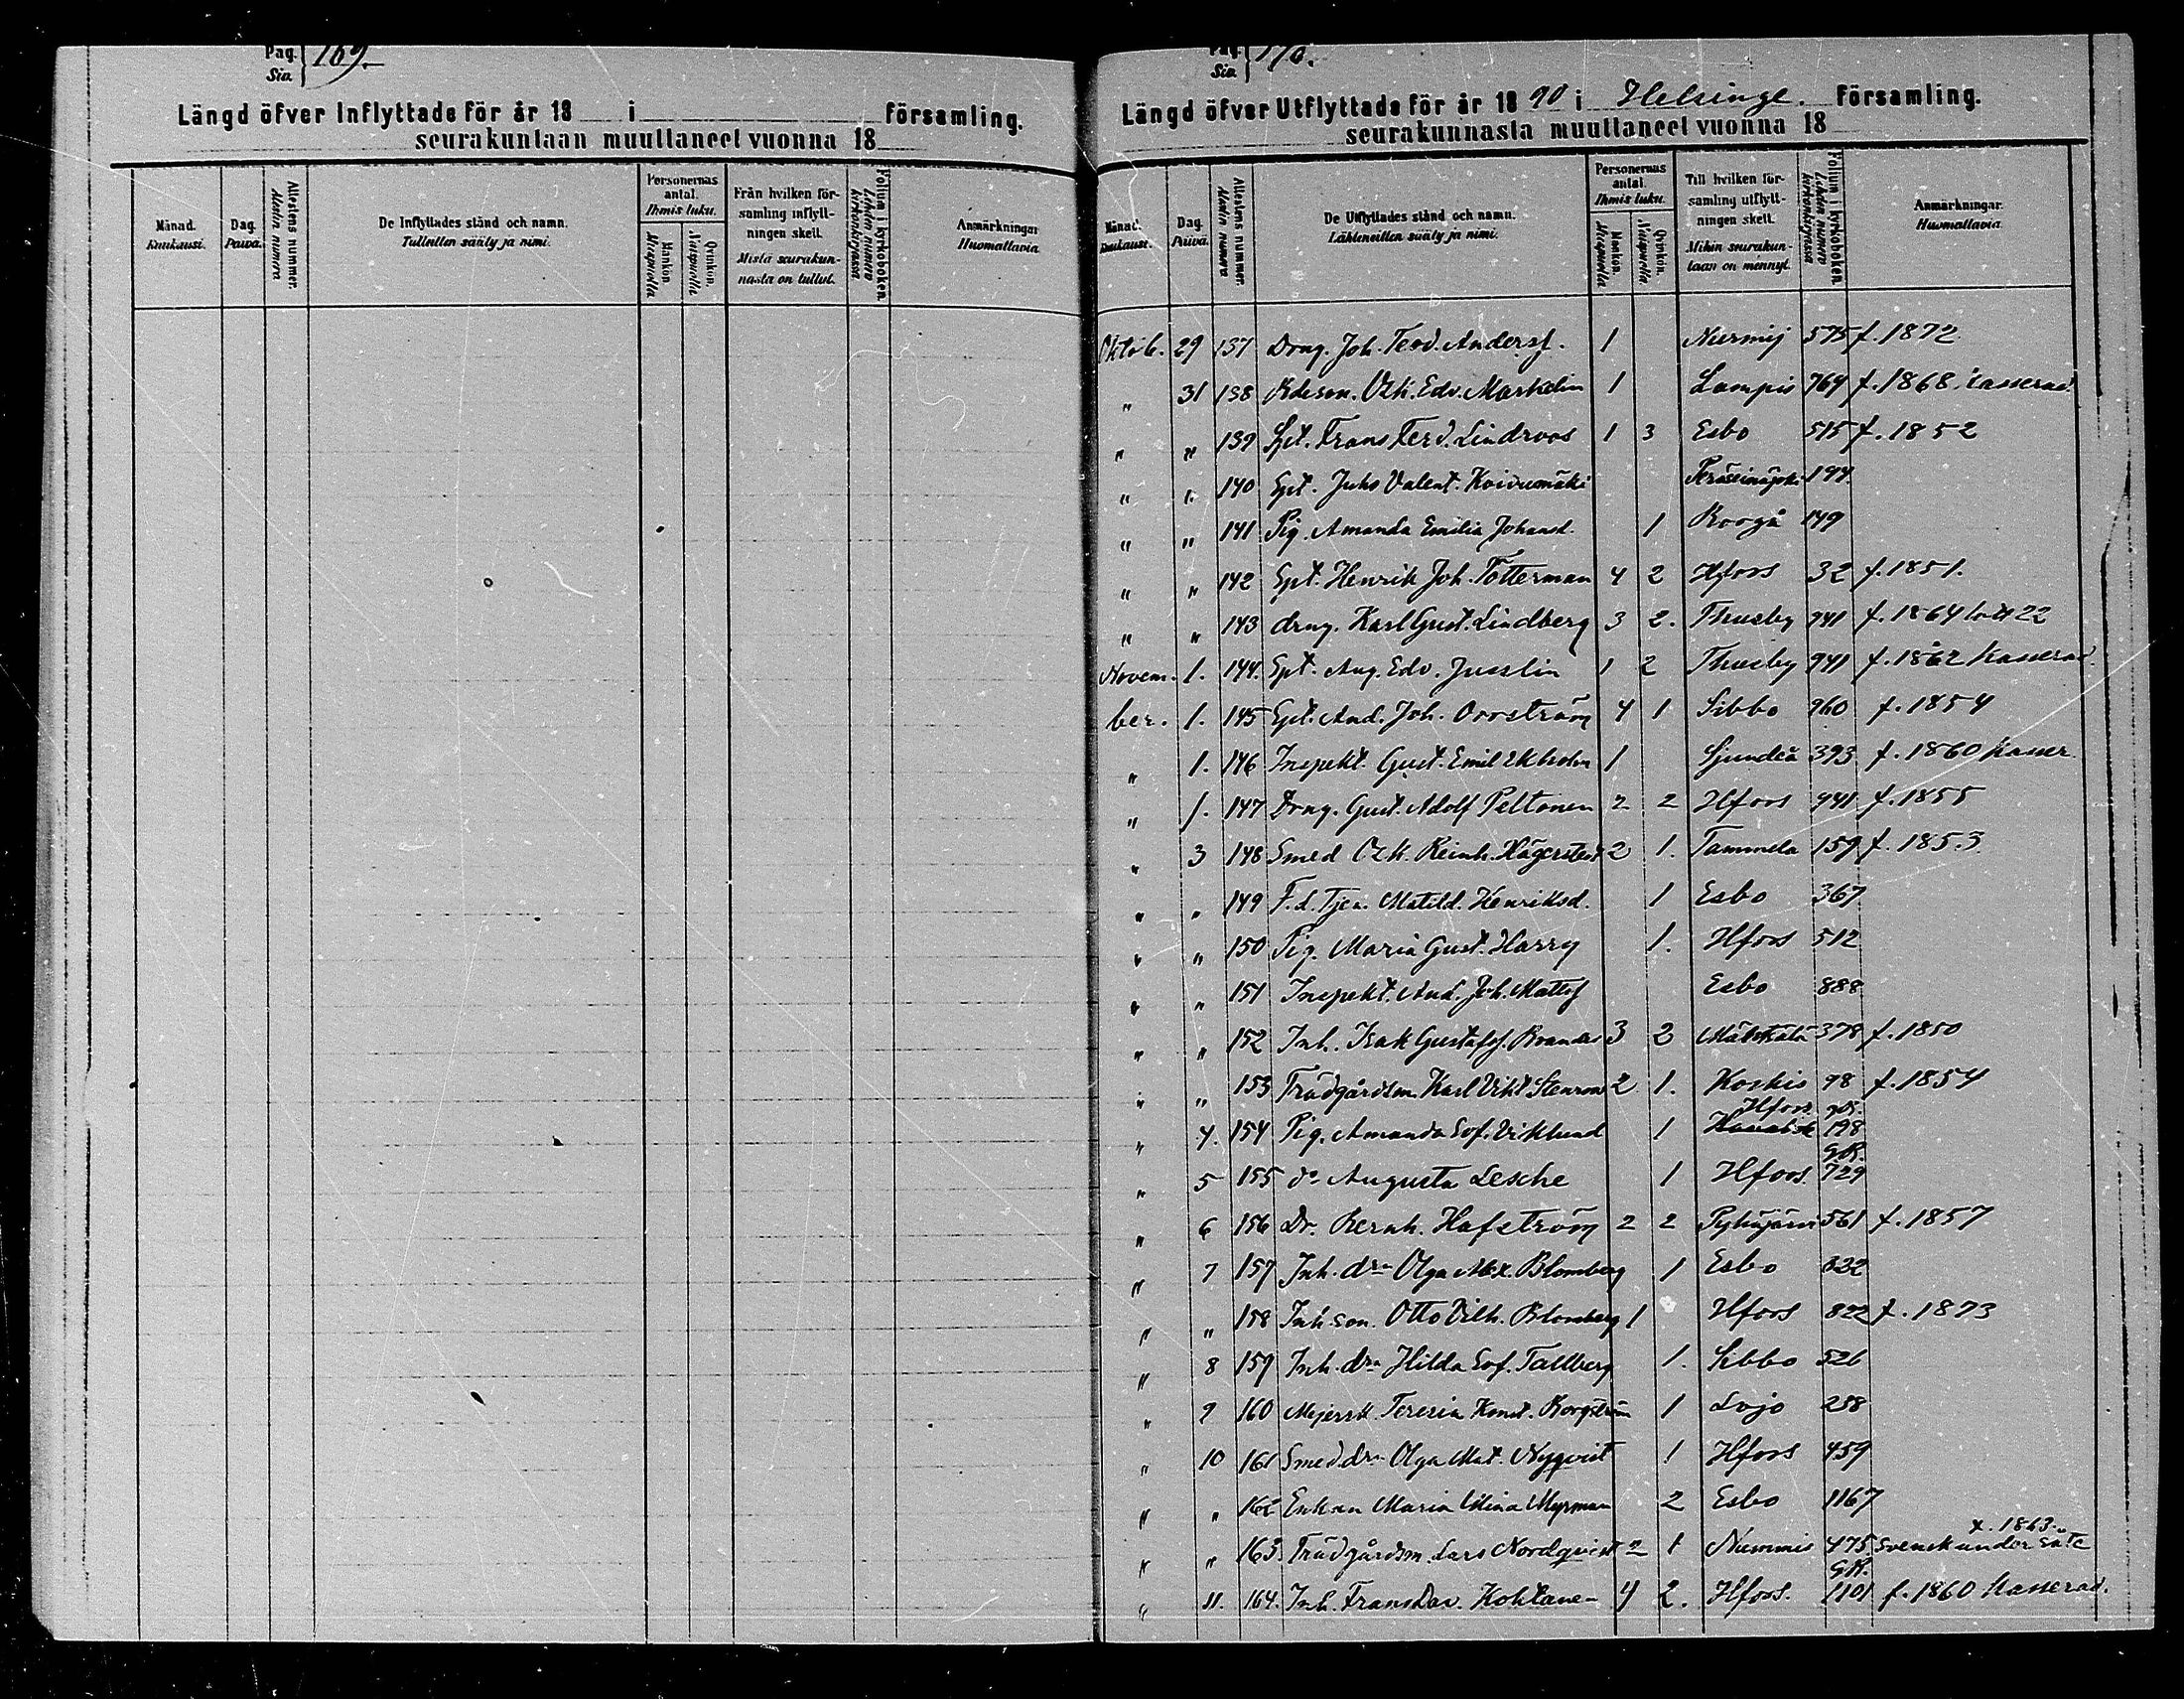 Pag. Sia. 169.
Längd öfver Inflyttade för år 18 i församling.
seurakuntaan muuttaneet vuonna 18
Månad. Kuukausi.
Dag. Päivä.
Attestens nummer. Alestin numero
De Inflyttades stånd och namn. Tulleitten sääty ja nimi.
Personernas antal. Ihmis luku.
Mankön. Miespuolia
Qvinkön. Naispuolia
Från hvilken församling inflyttningen skett. Mistä seurakunnasta on tullut.
Folium i kyrkoboken. Lehden numero kirkonkirjassa
Anmärkningar Huomattavia
Pag. Sia. 170.
Längd öfver Utflyttade för år 1890 i Helsinge. församling.
seurakunnasta muuttaneet vuonna 18
Månad. Kuukausi.
Dag. Päivä.
Attestens nummer. Alestin numero
De Utflyttades stånd och namn. Lähteneitten sääty ja nimi.
Personernas antal. Ihmis luku.
Mankön. Miespuolia
Qvinkön. Naispuolia
Till hvilken församling utflyttningen skett. Mihin seurakuntaan on mennyt.
Folium i kyrkoboken. Lehden numero kirkonkirjassa
Anmärkningar. Huomattavia
Oktob. 29 137 Dräng. Joh. Ferd. Andersf. 1 Nurmij 575 f. 1872
" 31 138 Bdeson. Osk. Edv. Markelin 1 Lampis 764 f. 1868. kasserad.
" " 139 Spt. Frans Ferd. Lindroos 1 3 Esbo 515 f. 1852
" " 140 Spt. Juho Valent. Koivumäki Peräseinäjoki 194.
" " 141 Pig. Amanda Emilia Johansd. 1 Borgå 149
" " 142 Spt. Henrik Joh. Totterman 4 2 Hfors 32 f. 1851.
" " 143 drng. Karl Gust. Lindberg 3 2. Thusby 941 f. 1864 22
Novem- 1. 144. Spt. Aug. Edv. Jusslin 1 2 Thusby 941 f. 1862 kasserad.
ber. 1. 145 Spt. And. Joh. Orrström 4 1 Sibbo 960 f. 1854
" 1. 146 Inspekt. Gust. Emil Ekholm 1 Sjundeå 393 f. 1860 kasser.
" 1. 147 Drng. Gust. Adolf Peltonen 2 2 Hfors 941 f. 1855
" 3 148 Smed Osk. Reinh. Hägerstedt 2 1. Tammela 159 f. 1853.
" " 149 F.d. Tjen. Matild. Henriksd. 1 Esbo 367
" " 150 Pig. Maria Gust. Harry 1. Hfors 512
" " 151 Inspekt. And. Joh. Mattsf Esbo 888
" " 152 Inh. Isak Gustafsf. Brander 3 2 Mäntsälä 378 f. 1850
" " 153 Trädgårdsm. Karl Vikt Stenroos 2 1. Koskis 98 f. 1854
" 4. 154 Pig. Amanda Sof. Viklund 1 Hfors. 198
" 5 155 do Augusta Lesche 1 Hfors. 729
" 6 156 Dr. Bernh. Hafström 2 2 Pyhäjärvi 561 f. 1857
" 7 157 Inh. dra Olga Alex. Blomberg 1 Esbo 822
" " 158 Inh. son. Otto Vilh. Blomberg 1 Hfors 822 f. 1873
" 8 159 Inh. dra Hilda Sof. Tallberg 1. Sibbo 526
" 9 160 Mejersk. Teresia Konst. Borgström 1 Lojo 258
" 10 161 Smed.dra Olga Mat. Nyqvist 1 Hfors 459
" " 162 Enkan Maria Mina Myrman 2 Esbo 1167
" " 163. Trädgårdsm. Lars Nordqvist 2 1 Nummis 475 f. 1863. svensk undersåte
" 11. 164. Inh. Frans Dav. Kohtanen 4 2. Hfors. G.R. 1101 f. 1860 kasserad.